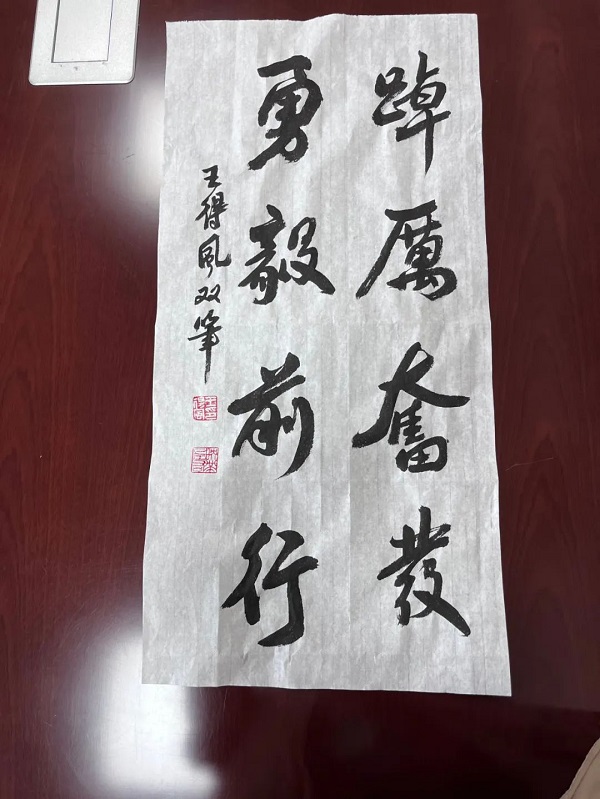 踔厲奮發
勇毅前行
王得風双筆